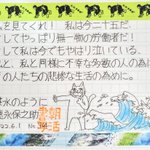 を見てくれ！私は今二十五だ、
してやっぱり無一物の労働者だ！
して私は今でもやはり泣いている、
と、私と同様に不幸な多数の人の為に
の人たちの悲惨な生活の為めに。
水のように
永保之助